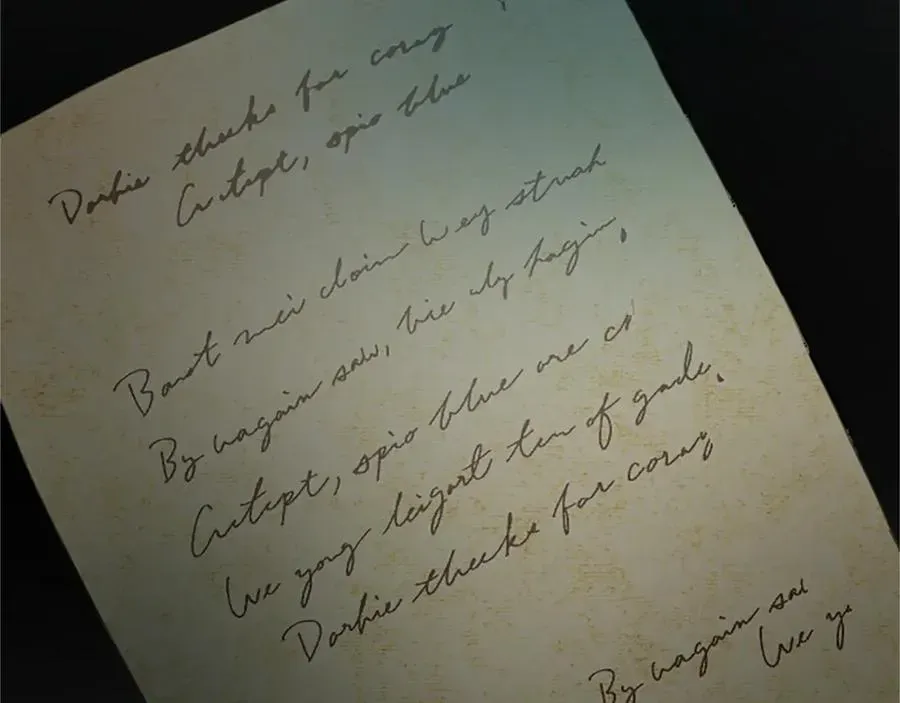 Dorhie theeks for corag
Cretept, spio blue
Barot mei cloin wey struah
By wagain saw, bie uly hagin,
Cretept, spio blue ore co
We yong leigart ten of garle,
Dorhie theeks for corag
By wagain saw
We yo